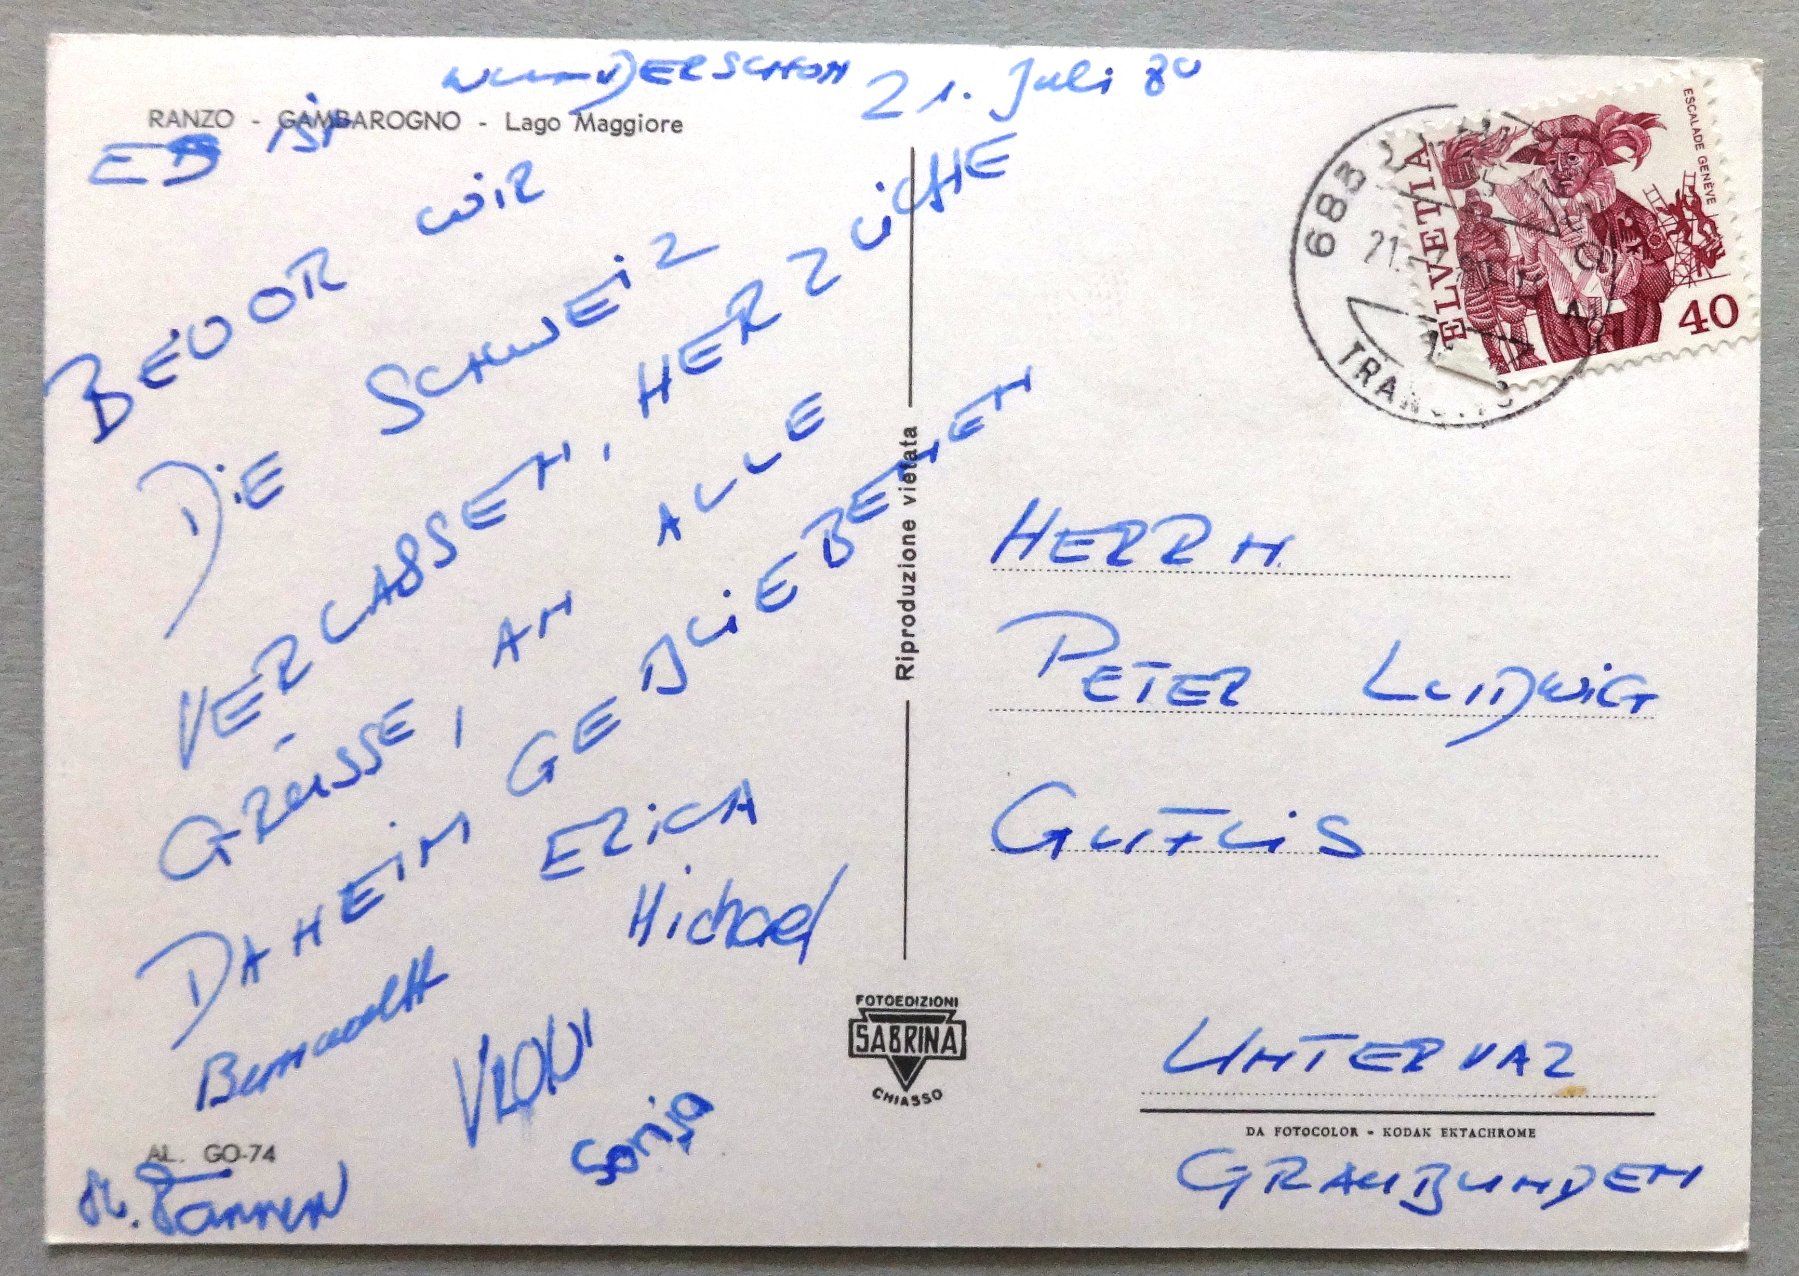 RANZO - GAMBAROGNO - Lago Maggiore
21. Juli 80
ES IST WUNDERSCHON
BEVOR WIR
DIE SCHWEIZ
VERLASSEN, HERZLICHE
GRÜSSE, AN ALLE
DAHEIM GEBLIEBENEN
ERICA
Michael
Bernadett
VRONI
Sonja
AL. GO-74
Riproduzione vietata
FOTOEDIZIONI
SABRINA
CHIASSO
ESCALADE GENÈVE
HELVETIA
40
683
21.
HERRN
PETER LUDWIG
GUFLIS
UNTERVAZ
DA FOTOCOLOR - KODAK EKTACHROME
GRAUBUNDEN